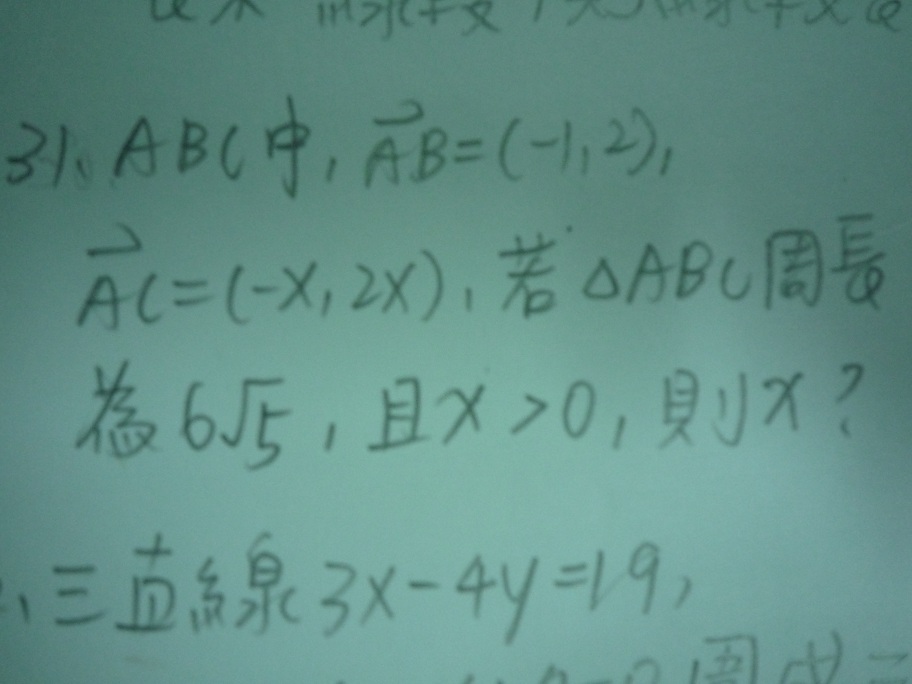 31、ABC中, AB=(-1,2),
AC=(-x,2x), 若 △ABC周長
為6√5, 且x>0, 則x?
三直線3x-4y=19,